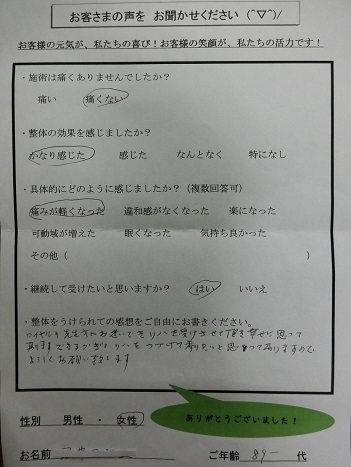 お客さまの声を お聞かせください (^▽^)/
お客様の元気が、私たちの喜び！お客様の笑顔が、私たちの活力です！
・施術は痛くありませんでしたか？
痛い 痛くない
・整体の効果を感じましたか？
かなり感じた 感じた なんとなく 特になし
・具体的にどのように感じましたか？（複数回答可）
痛みが軽くなった 違和感がなくなった 楽になった
可動域が増えた 眠くなった 気持ち良かった
その他（ ）
・継続して受けたいと思いますか？
はい いいえ
・整体をうけられての感想をご自由にお書きください。
受けさせて頂き幸せに思って
つづけて
よろしくお願い致します
ありがとうございました！
性別 男性 ・ 女性
お名前
ご年齢 89 代